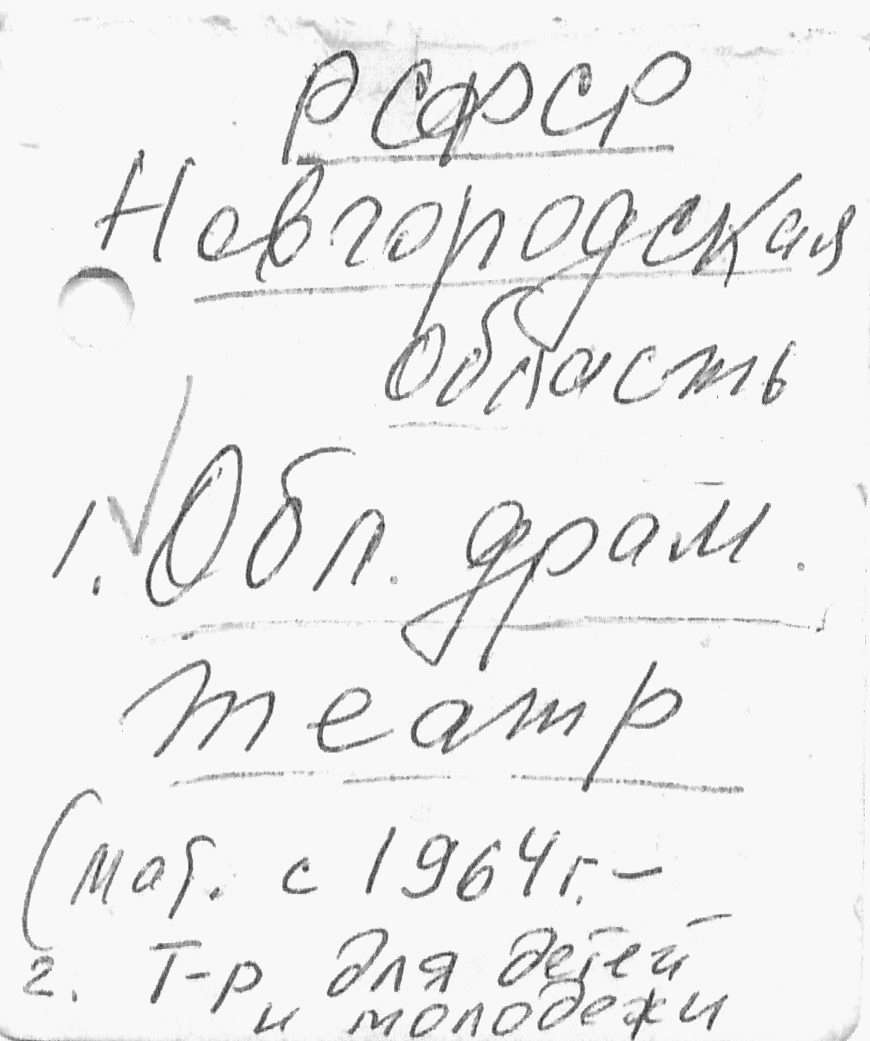 РСФСР
Новгородская
область
1. Обл. драм.
театр
(мат. с 1964 г. –
2. Т-р для детей
и молодежи